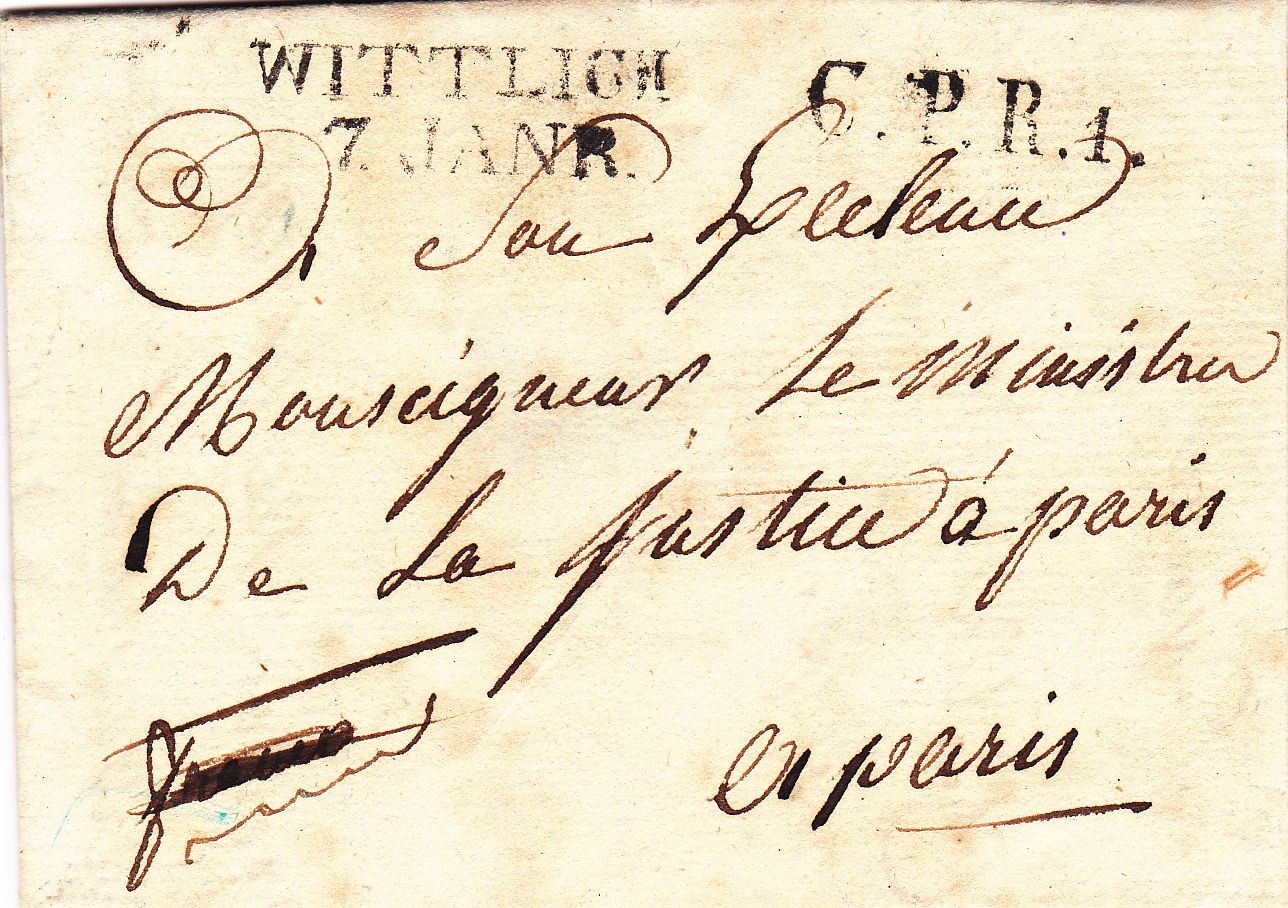 WITTLICH C.P.R.1.
7. JANR.
A son Excellence
Monseigneur Le Ministre
De La Justice à paris
franco
en paris